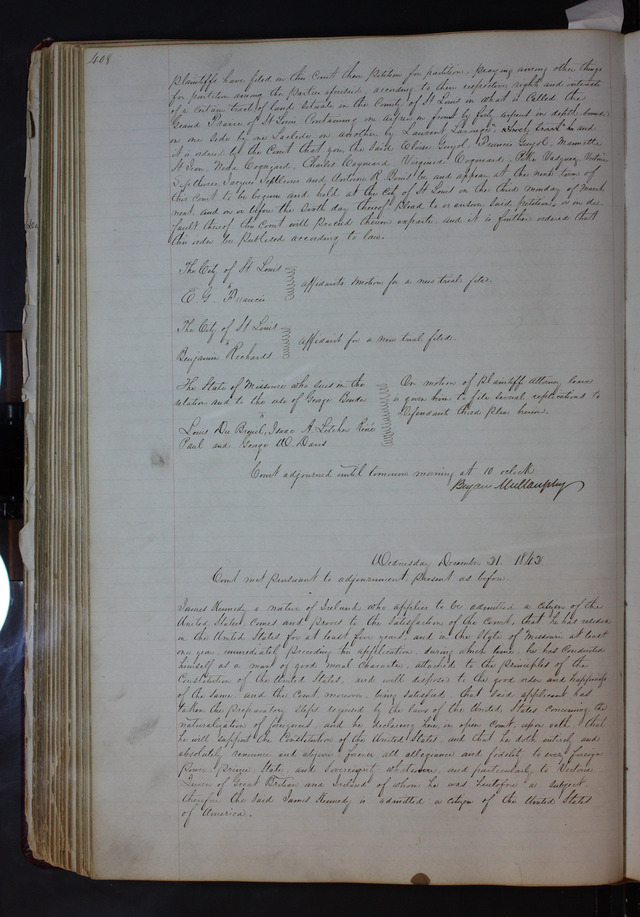 408
Plaintiffs have filed in this Court their Petition for partition, Praying among other things
for partition among the Parties aforesaid, according to their respective rights and interests
of a certain tract of land situate in the County of St Louis in what is called the
Grand Prairie of St Louis Containing one arpent in front by forty arpens in depth, bound
on one side by one Laclede on another by Laurent and
it is ordered by the Court that you, the said Eloise Guyol, Francis Guyol, Mannette
St Jean, Charles Virginia Vasquez,
Jacques and Antoine R. be and appear at the next term of
this Court to be begun and held at the City of St Louis on the third monday of March
next, and on or before the Sixth day thereof Plead to or answer said petition, or in de
fault thereof the Court will Proceed therein exparte, and it is further ordered that
this order be Published according to law.
The City of St Louis
vs
C. G. Francis
affidavits motion for a new trial filed.
The City of St Louis
vs
Benjamin Richards
affidavit for a new trial filed.
The State of Missouri who sues on the
relation and to the use of George
vs
Louis Du Breuil, Isaac A. Letcher René
Paul and George W.
On motion of Plaintiff Attorney leave
is given him to file several replications to
Defendant third Plea herein.
Court adjourned until tomorrow morning at 10 oclock
Bryan Mullanphy
Wednesday December 31. 184
Court met pursuant to adjournment, present as before.
James Kennedy a native of Ireland who applies to be admitted a citizen of the
United States, Comes and proves to the Satisfaction of the Court, that he has resided
in the United States for at least five years, and in the State of Missouri at least
one year, immediately Preceding his application, during which time, he has Conducted
himself as a man of good moral Character, attached to the Principles of the
Constitution of the United States, and well disposed to the good order and happiness
of the same and the Court, moreover, being satisfied, that said applicant has
taken the Preparatory steps required by the laws of the United States concerning the
naturalization of foreigners, and he declaring here in open Court, upon oath, that
he will support the Constitution of the United States and that he doth entirely and
absolutely renounce and abjure forever all allegiance and fidelity to every foreign
Power, prince, State, and Sovereignty whatever, and particularly to Victoria
Queen of Great Britain and Ireland of whom he was heretofore a subject
therefore the Said James Kennedy is admitted a citizen of the United States
of America.